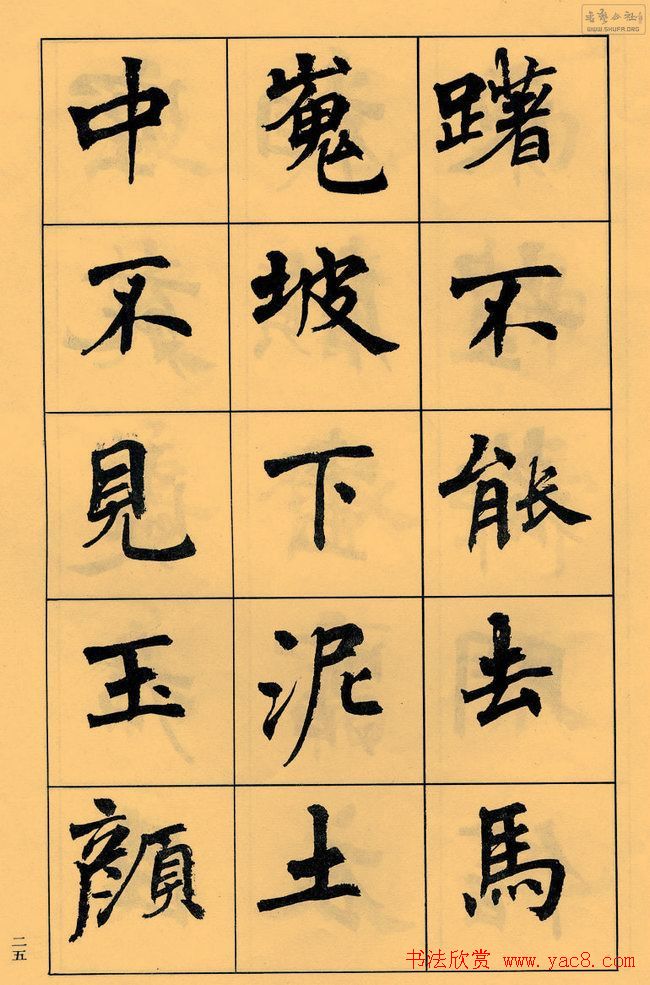 躇不能去馬
嵬坡下泥土
中不見玉顏
二五
书法欣赏 www.yac8.com
WWW.SHUFA.ORG